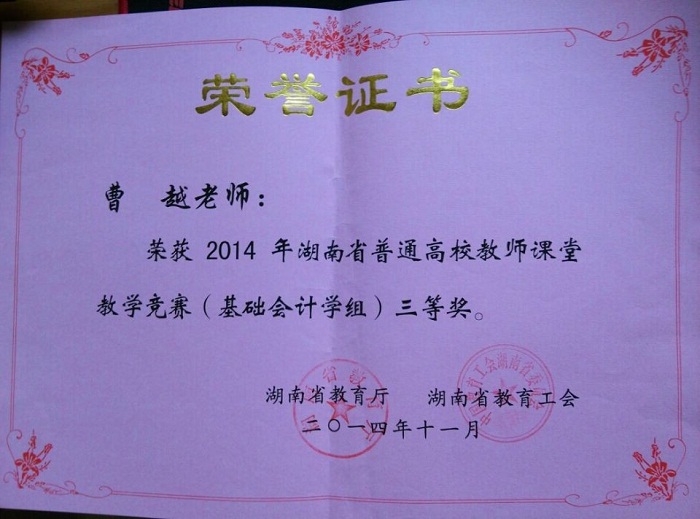 荣誉证书
曹 越老师：
荣获 2014 年湖南省普通高校教师课堂
教学竞赛（基础会计学组）三等奖。
湖南省教育厅 湖南省教育工会
二〇一四年十一月